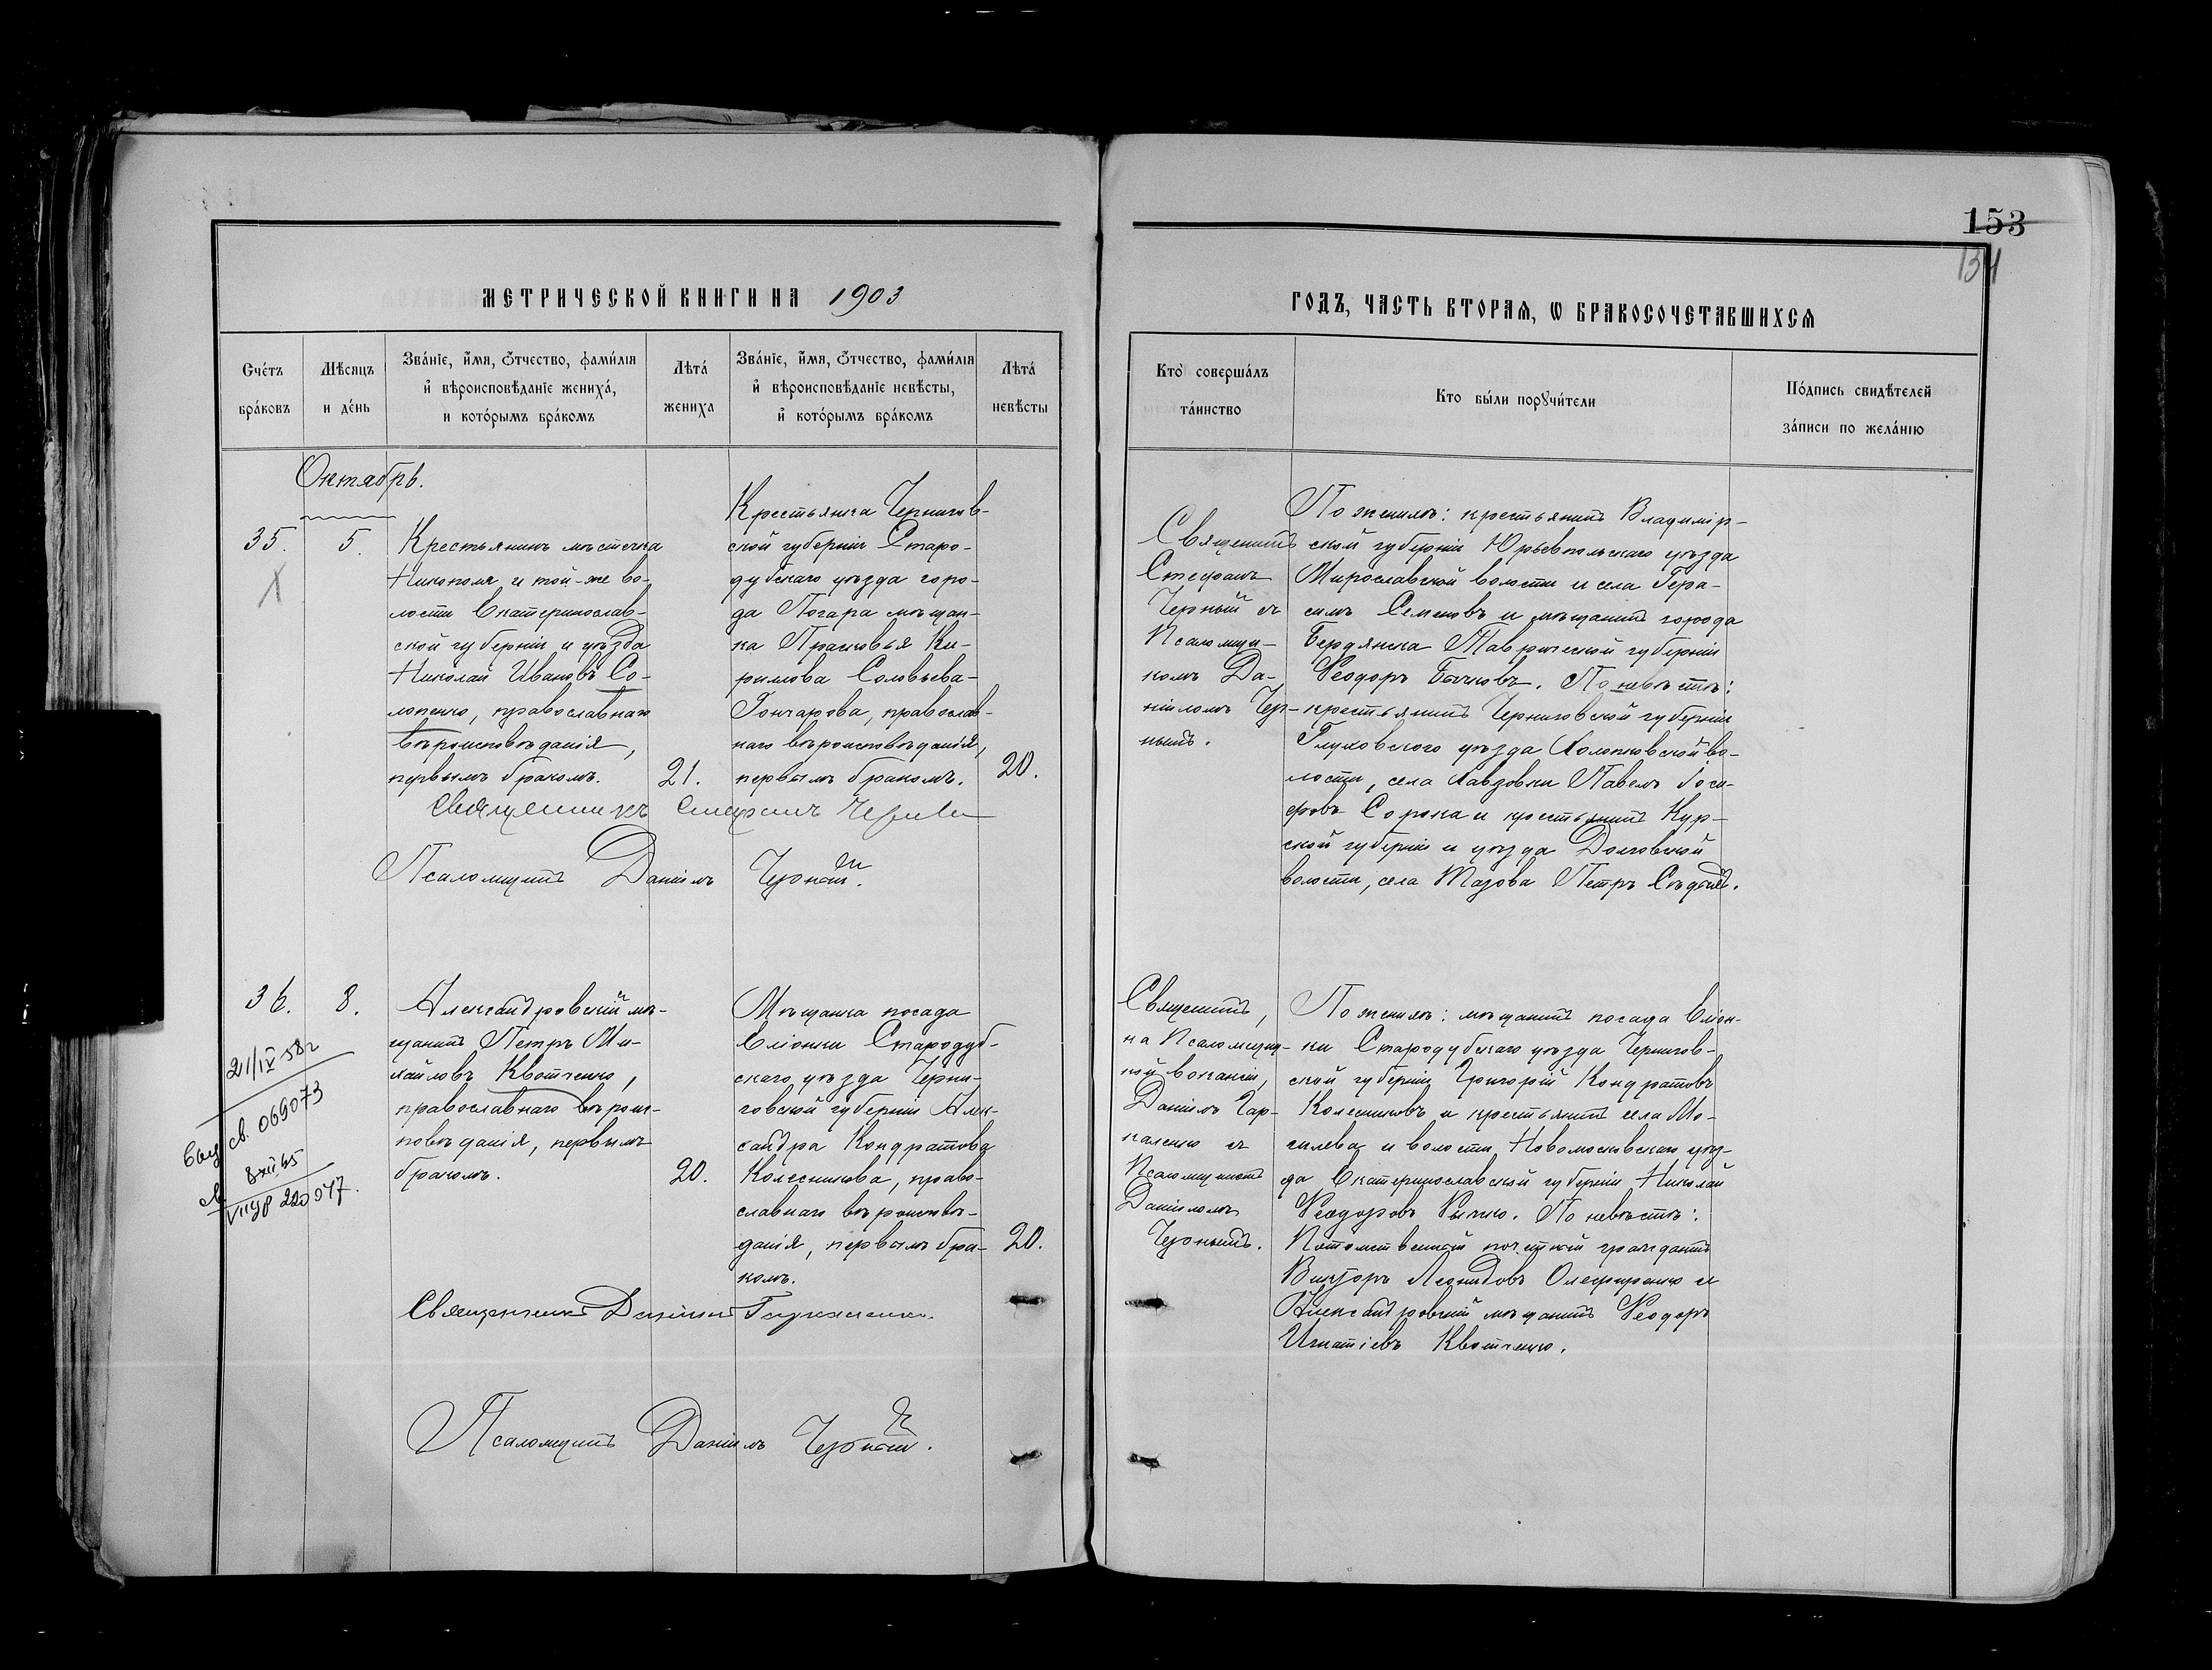 153
134
МЕТРИЧЕСКОЙ КНИГИ НА 1903
ГОДЪ, ЧАСТЬ ВТОРАЯ, Ѡ БРАКОСОЧЕТАВШИХСЯ
Счетъ браковъ
Мѣсяцъ и день
Званіе, имя, отчество, фамилія
и вѣроисповѣданіе жениха,
и которымъ бракомъ
Лѣта жениха
Званіе, имя, отчество, фамилія
и вѣроисповѣданіе невѣсты,
и которымъ бракомъ
Лѣта невѣсты
Кто совершалъ
таинство
Кто были поручители
Подпись свидѣтелей
записи по желанію
Октябрь.
35.
5.
Крестьянинъ мѣстечка
Никополя и той-же во-
лости Екатеринослав-
ской губерніи и уѣзда
Николай Ивановъ Со-
лопенко, православнаго
вѣроисповѣданія,
первымъ бракомъ.
21.
Крестьянка Чернигов-
ской губерніи Старо-
дубскаго уѣзда горо-
да Погара мѣщан-
ка Прасковья Ки-
рилова Соловьева-
Гончарова, православ-
наго вѣроисповѣданія,
первымъ бракомъ.
20.
Священникъ Стефанъ Черный
Псаломщикъ Даніилъ Черный.
Священникъ
Стефанъ
Черный съ
Псаломщи-
комъ Да-
ніиломъ Чер-
нымъ.
По женихѣ: крестьянинъ Владимір-
ской губерніи Юрьевпольскаго уѣзда
Мирославской волости и села Гера-
симъ Семеновъ и мѣщанинъ города
Бердянска Таврической губерніи
Ѳеодоръ Бычковъ. По невѣстѣ:
крестьянинъ Черниговской губерніи
Глуховского уѣзда Холопковской во-
лости, села Павел
Сорока и крестьянинъ Кур-
ской губерніи и уѣзда Долговской
волости, села Мазова Петръ
36.
8.
Александровскій мѣ-
щанинъ Петръ Ми-
хайловъ Квотченко,
православнаго вѣроис-
повѣданія, первымъ
бракомъ.
20.
Мѣщанка посада
Еліонки Стародуб-
скаго уѣзда Черни-
говской губерніи Алек-
сандра Кондратова
Колесникова, право-
славнаго вѣроисповѣ-
данія, первымъ бра-
комъ.
20.
21/IV 58г
св. 069073
8 XII 45
220947.
Священникъ Даніилъ Гаркаленко.
Псаломщикъ Даніилъ Черный.
Священникъ,
на Псаломщиц-
кой вакансіи,
Даніилъ Гар-
каленко съ
Псаломщикомъ
Даніиломъ
Чернымъ.
По женихѣ: мѣщанинъ посада Еліон-
ки Стародубскаго уѣзда Чернигов-
ской губерніи Григорій Кондратовъ
Колесниковъ и крестьянинъ села Мо-
гилева и волости, Новомосковскаго уѣз-
да Екатеринославской губерніи Николай
Ѳеодоровъ По невѣстѣ:
Потомственный почетный гражданинъ
Викторъ Леонидовъ Олефиренко и
Александровскій мѣщанинъ Ѳеодоръ
Игнатіевъ Квотченко.